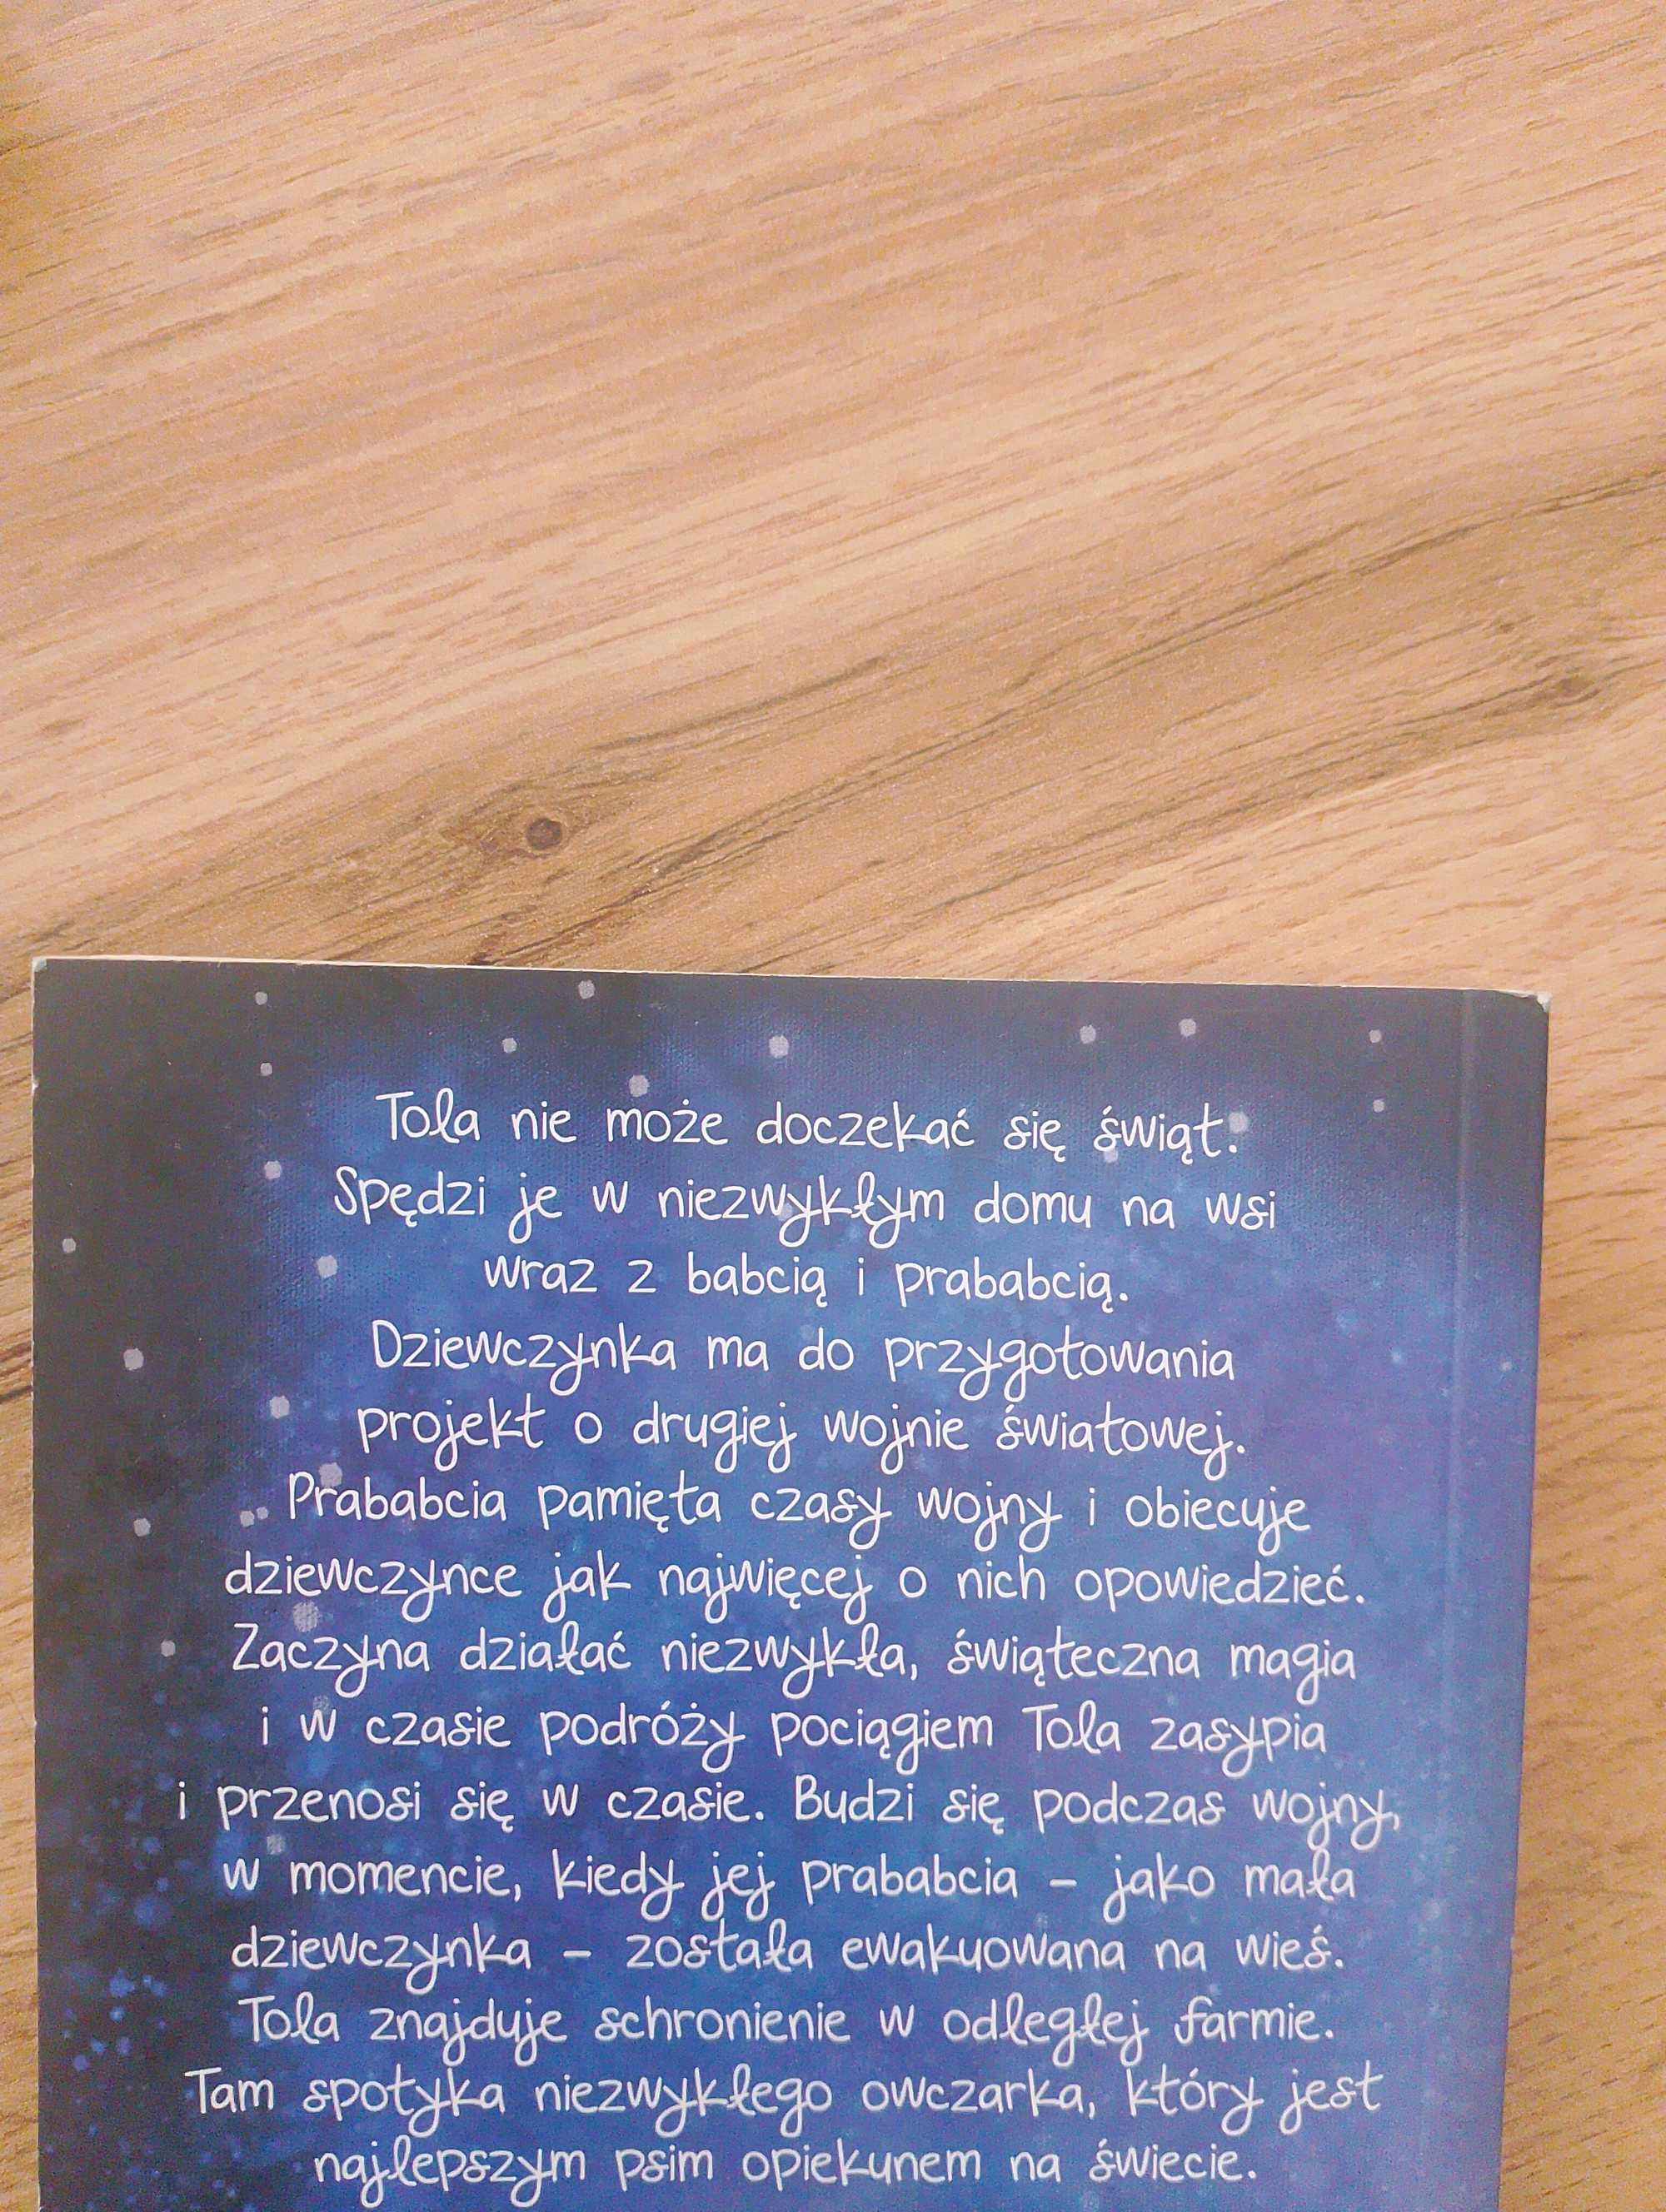 Tola nie może doczekać się świąt.
Spędzi je w niezwykłym domu na wsi
wraz z babcią i prababcią.
Dziewczynka ma do przygotowania
projekt o drugiej wojnie światowej.
Prababcia pamięta czasy wojny i obiecuje
dziewczynce jak najwięcej o nich opowiedzieć.
Zaczyna działać niezwykła, świąteczna magia
i w czasie podróży pociągiem Tola zasypia
i przenosi się w czasie. Budzi się podczas wojny,
w momencie, kiedy jej prababcia – jako mała
dziewczynka – została ewakuowana na wieś.
Tola znajduje schronienie w odległej farmie.
Tam spotyka niezwykłego owczarka, który jest
najlepszym psim opiekunem na świecie.